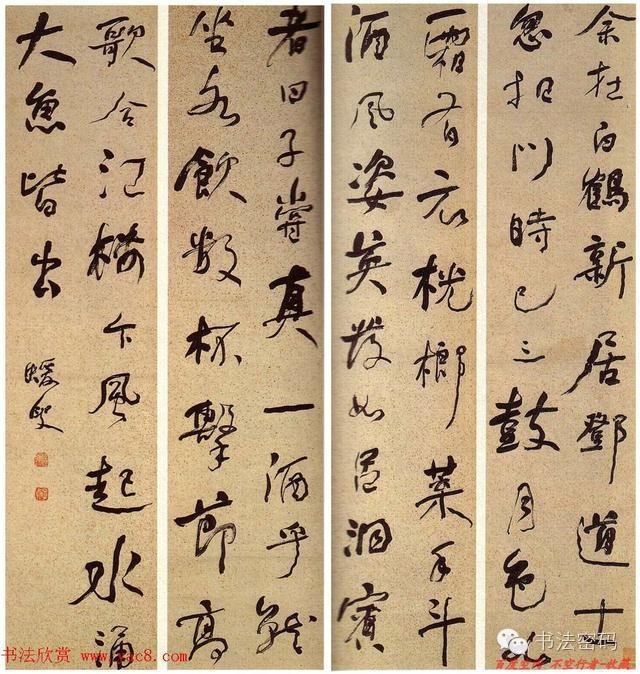 余在白鶴新居鄧道士
忽扣門時已三鼓月色如
霜有衣桄榔葉手斗
酒風姿英發如呂洞賓
者曰子嘗真一酒乎就
坐各飲數杯擊節高
歌合江樓下風起水涌
大魚皆出
蝯叟
书法欣赏 www.yac8.com
书法密码
百度空间 不空行者-收藏